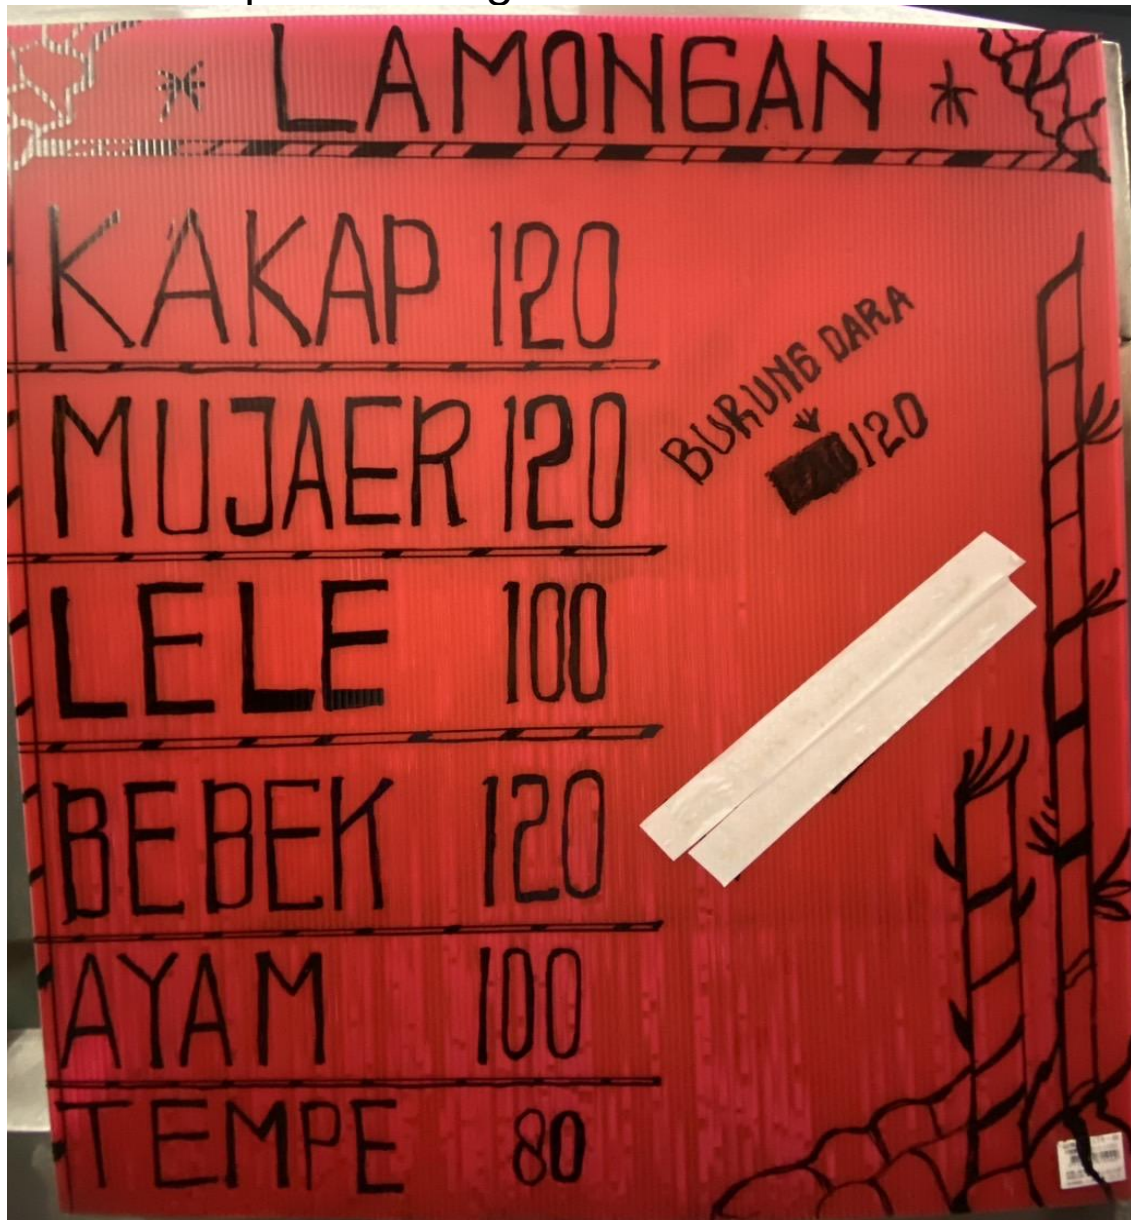 LAMONGAN
KAKAP 120
MUJAER 120
LELE 100
BEBEK 120
AYAM 100
TEMPE 80
BURUNG DARA
120